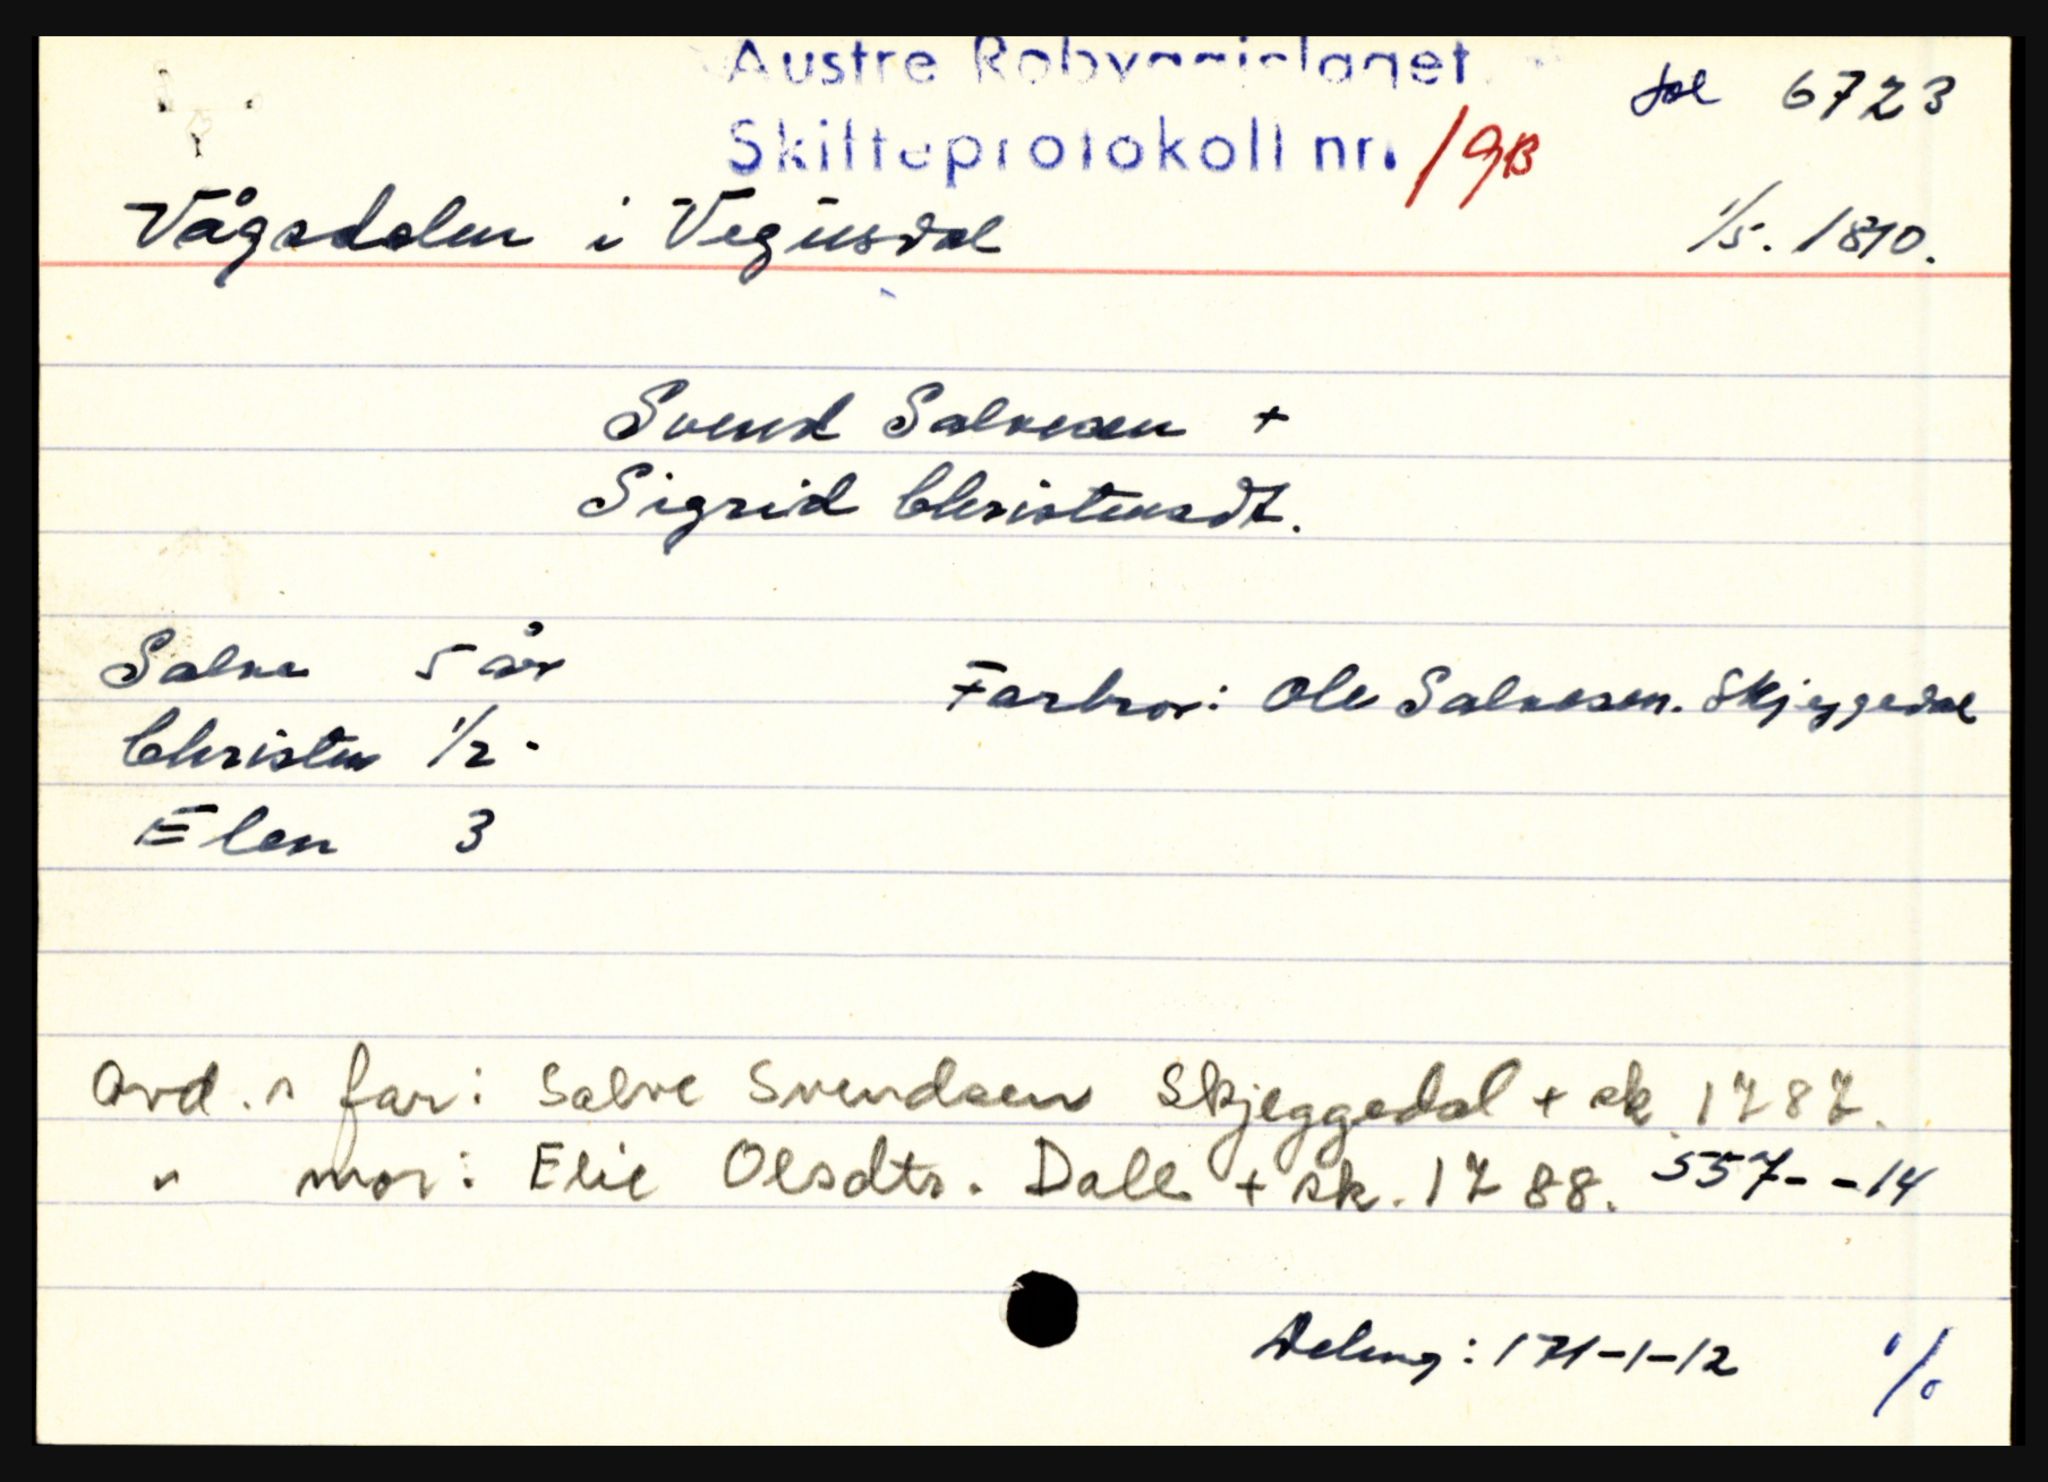 Austre Robyggjelaget
Skifteprotokoll nr. 19B
fol 6723
Vågsdalen i Vegusdal
1/5. 1810.
Svend Salvesen +
Sigrid Christensdt.
Salve 5 år
Farbror: Ole Salvesen. Skjeggedal
Christen 1/2 -
Elen 3
Avd. s far: Salve Svendsen Skjeggedal + sk 1787.
" mor: Elie Olsdtr. Dale + sk. 1788.
557 - - 14
Deling: 171-1-12